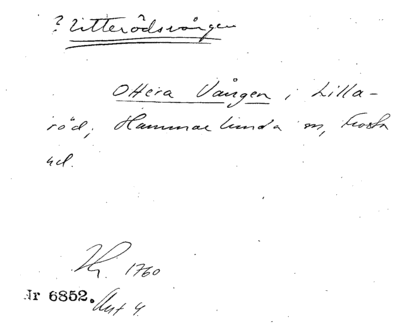 ? Litterödsvången
Ottera Vången i Lilla-
röd, Hammarlunda sn, Frosta
hd.
1760
Nr 6852. Akt 4.